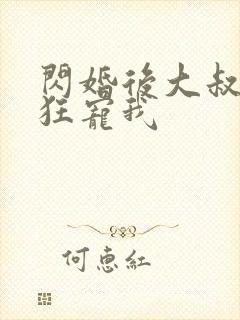 閃婚後大叔
狂寵我
何惠紅